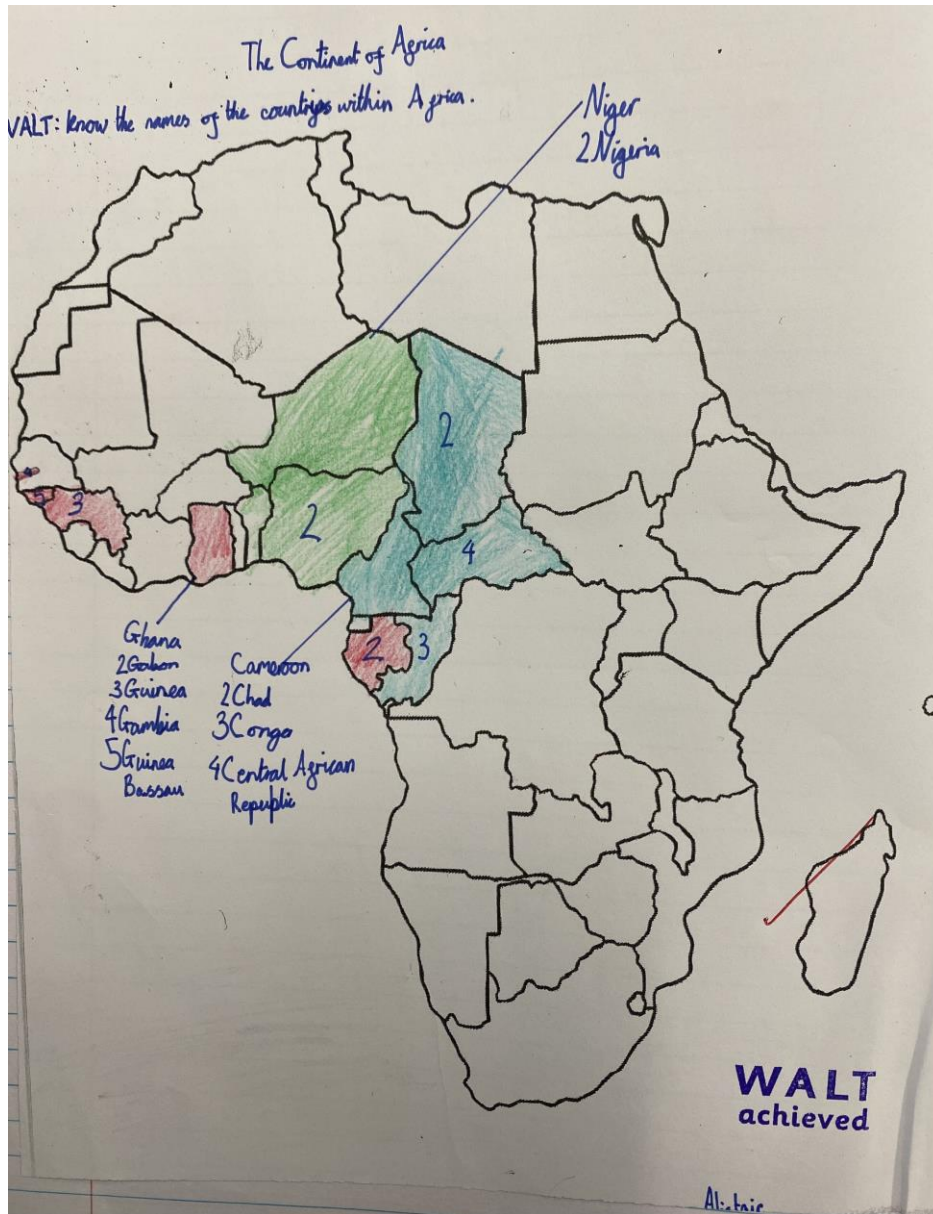 The Continent of Africa
WALT: know the names of the countries within Africa.
Niger
2 Nigeria
2
2
4
3
5
2
3
Ghana
2 Gabon
3 Guinea
4 Gambia
5 Guinea
Bassau
Cameroon
2 Chad
3 Congo
4 Central African
Republic
WALT
achieved